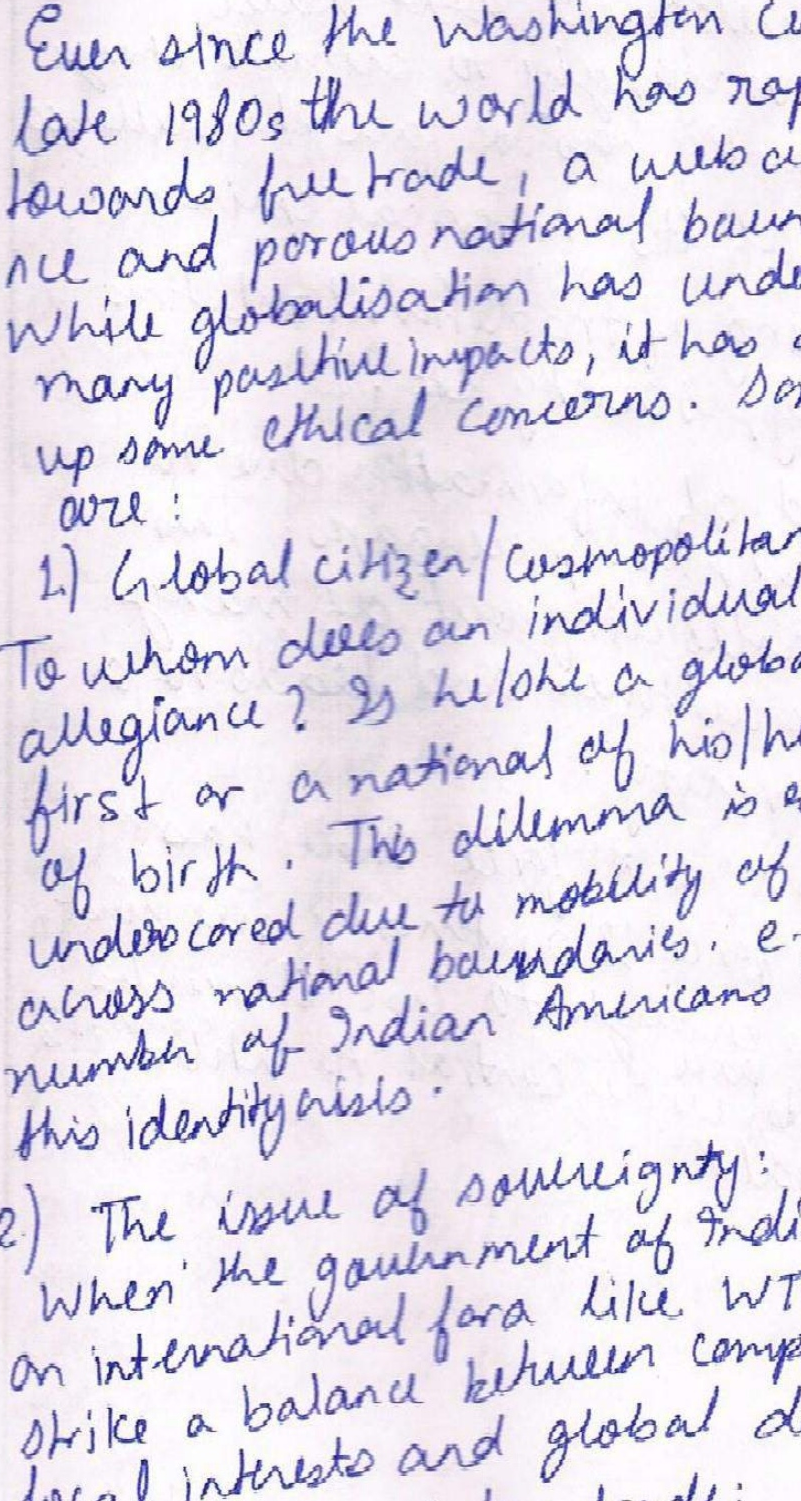 Ever since the Washington
late 1980s the world has
towards free trade, a web
nce and porous national
While globalisation has
many positive impacts, it has
up some ethical concerns.
are :
1) Global citizen/Cosmopolitan
To whom does an individual
allegiance? Is he/she a
first or a national of his/
of birth. This dilemma is
underscored due to mobility of
across national boundaries.
number of Indian Americans
this identity crisis.
2) The issue of sovereignty:
When the government of
on international fora like
strike a balance between
local interests and global